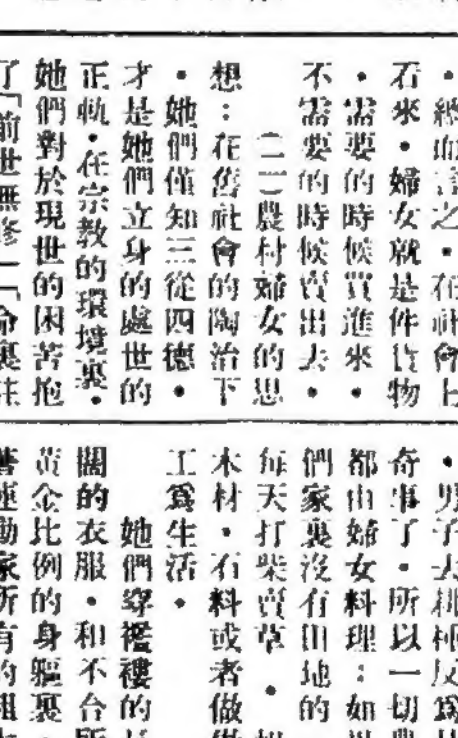 ・總而言之・在社會上
石來・婦女就是件貨物
・需要的時候買進來・
不需要的時候賣出去・
(二)農村婦女的思
想：在舊社會的陶冶下
・她們僅知三從四德・
才是她們立身的處世的
正軌・在宗教的環境裏・
她們對於現世的困苦抱
了「前世無修」「命裏註
・男子去耕種反爲
奇事了・所以一切農
都由婦女料理：如
們家裏沒有田地的
每天打柴賣草・
木材・石料或者做
工爲生活・
她們穿襤褸的
闊的衣服・和不合
黃金比例的身軀裏・
著運動家所有的粗